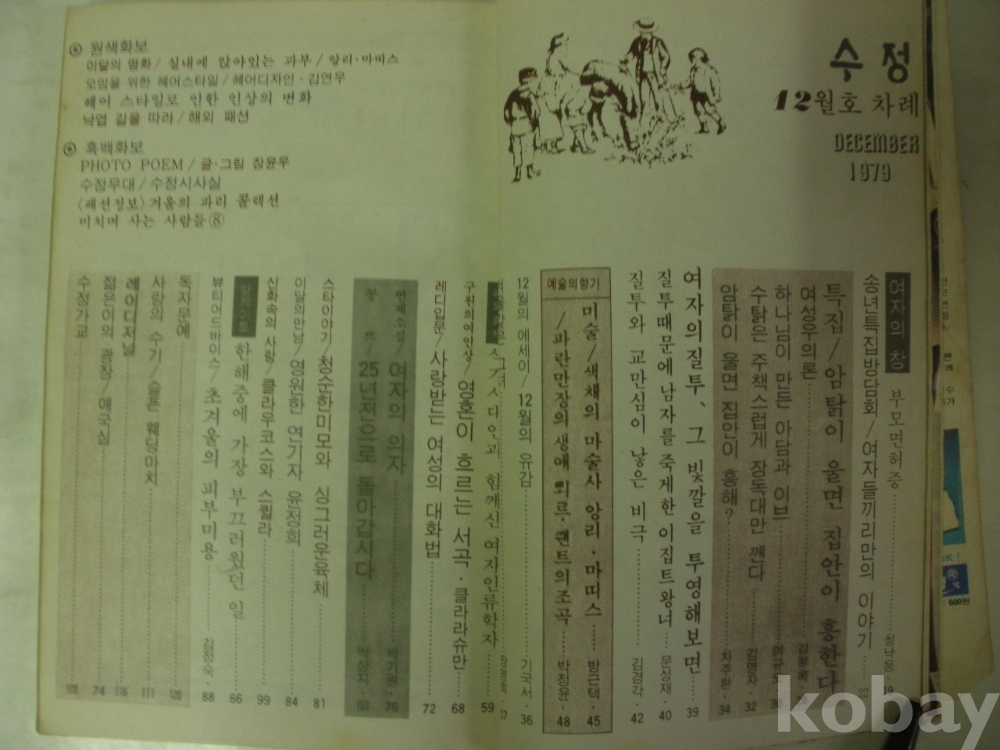 수정
12월호 차례
DECEMBER
1979
◉ 원색화보
이달의 명화/실내에 앉아있는 과부/앙리·마띠스
모임을 위한 헤어스타일/헤어디자인·김연우
헤어 스타일로 인한 인상의 변화
낙엽 길을 따라/해외 패션
◉ 흑백화보
PHOTO POEM/글·그림 장윤우
수정무대/수정시사실
〈패션정보〉겨울의 파리 콜렉션
미치며 사는 사람들⑧
여자의 창 부모면허증 19
송년특집방담회/여자들끼리만의 이야기 22
특집/암탉이 울면 집안이 흥한다
여성우의론
하나님이 만든 아담과 이브 30
수탉은 주책스럽게 장독대만 깬다 32
암탉이 울면 집안이 흥해? 차주환·34
여자의질투, 그 빛깔을 투영해보면 39
질투때문에남자를죽게한이집트왕녀 문성재·40
질투와 교만심이 낳은 비극 김경각·42
예술의향기
미술/색채의 마술사 앙리·마띠스 방근택·45
/파란만장의생애 뾔르·퀸트의조곡 박정윤·48
12월의 에세이/12월의 유감 기국서·36
함께신 여자인류학자 59
구원의여인상/영혼이 흐르는 서곡·클라라슈만 68
레디입문/사랑받는 여성의 대화법 72
연재소설/여자의 의자 박기원·76
꽁 뜨/25년전으로 돌아갑시다 박상지·103
스타이야기/청순한미모와 싱그러운육체 81
이달의만남/영원한 연기자 윤정희 84
신화속의 사랑/클라우코스와 스퀼라 99
한해중에 가장 부끄러웠던 일 66
뷰티어드바이스/초겨울의 피부미용 88
독자문예 120
사랑의 수기/슬픈 웨딩마치 111
레이디저널 116
젊은이의 광장/애국심 74
수정가교
600원
kobay